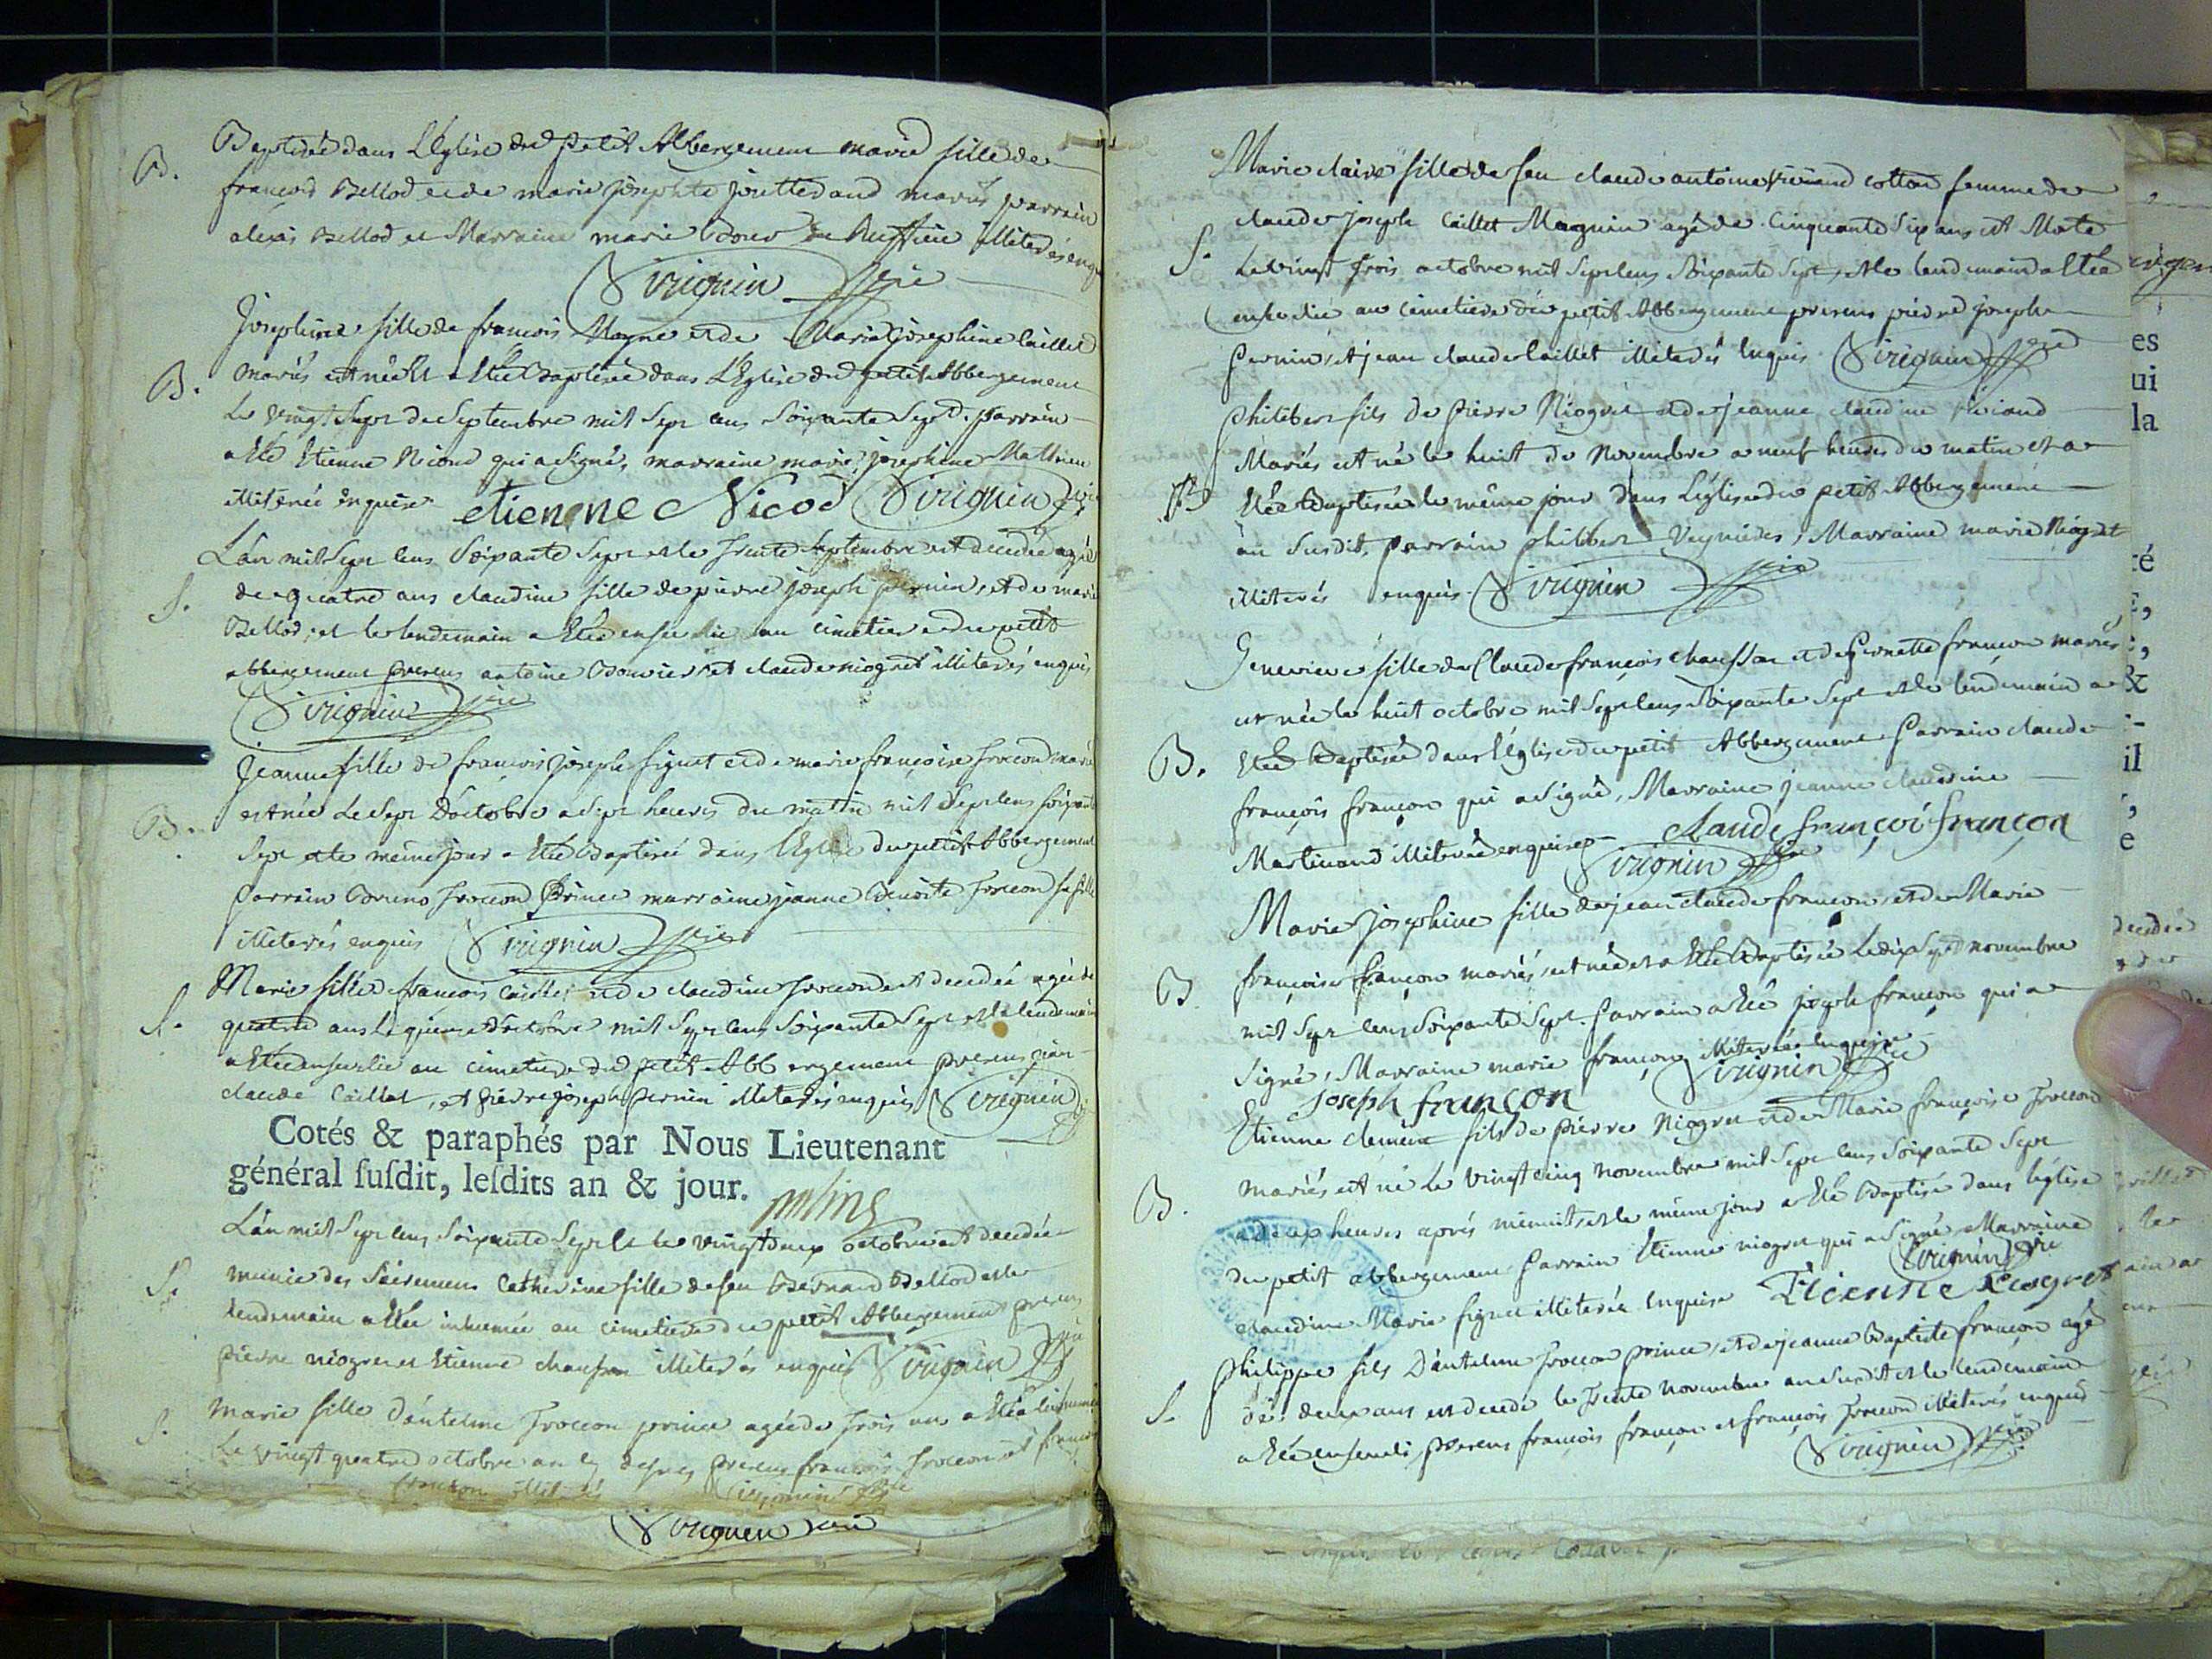 B. Baptisée dans L'Eglise du petit Abbergement marie fille de
francois Bellod et de marie josephte mariés parrain
alexis Bellod et Marraine marie de Ruffieu illiterés enquis
Virignin
Josephine fille de francois Mayne et de Marie Josephine Caillet
B. mariés est née et a Eté Baptisée dans L'Eglise du petit Abbergement
Le vingt Sept de Septembre mil Sept cens Soixante Sept. parrain
a été Etienne Nicoud qui a Signé, marraine marie josephine Mathieu
illiterée enquise etienne Nicod Virignin
L'an mil Sept cens Soixante Sept et le trente Septembre est decedée agée
S. de quatre ans claudine fille de pierre joseph pernin, et de marie
Bellod, et le lendemain a Eté ensevelie au cimetiere du petit
abbergement presens antoine Bouvier et claude niogret illiterés enquis
Virignin
Jeanne fille de francois joseph figuet et de marie françoise frocon mariés
B. est née Le Sept D'octobre a Sept heures du matin mil Sept cens Soixante
Sept et le meme jour a Eté Baptisée dans l'Eglise du petit Abbergement
Parrain Bruno frocon Prince marraine jeanne Benoite frocon sa fille
illiterés enquis Virignin
Marie fille de francois Caillet et de claudine frocon est decedée agée de
S. quatre ans Le quinze d'octobre mil Sept cens Soixante Sept et le lendemain
a Eté ensevelie au cimetiere du petit Abbergement presens jean
claude Caillet, et pierre joseph Pernin illiterés enquis Virignin
Cotés & paraphés par Nous Lieutenant
général ſuſdit, leſdits an & jour.
L'an mil Sept cens Soixante Sept et le vingt deux octobre est decedée
S. munie des Sacremens Catherine fille de feu Bernard Bellod et le
lendemain a Eté inhumée au cimetiere du petit Abbergement presens
pierre niogret et Etienne chausson illiterés enquis Virignin
S. marie fille d'antelme frocon prince agée de trois ans a Eté inhumée
Le vingt quatre octobre presens francois frocon et francois
illiterés Virignin
Virignin
Marie claire fille de feu claude antoine cotton femme de
claude joseph Caillet Magnin agée de Cinquante Six ans est Morte
S. Le vingt trois octobre mil Sept cens Soixante Sept, et le lendemain a Eté
ensevelie au cimetiere du petit Abbergement presens pierre joseph
Pernin, et jean claude Caillet illiterés Enquis Virignin
philibert fils de Pierre Niogret et de jeanne claudine
Mariés est né le huit de Novembre a neuf heures du matin et a
B Eté Baptisé le même jour dans L'église du petit Abbergement
an Susdit, parrain philibert, Marraine marie Niogret
illiterés enquis. Virignin
Genevieve fille de Claude françois chausson et de Pernette françon mariés
est née le huit octobre mil Sept cens Soixante Sept et le lendemain a
B. Eté Baptisée dans l'église du petit Abbergement Parrain claude
françois françon qui a Signé, Marraine jeanne claudine
Martinand illiterée enquise claude françoi françon
Virignin
Marie josephine fille de jean claude françon et de Marie
B françoise françon mariés, est née et a Eté Baptisée Le dix Sept novembre
mil Sept cens Soixante Sept. Parrain a Eté joseph françon qui a
Signé, Marraine marie françon illiterée enquise
joseph françon Virignin
Etienne clement fils de pierre Niogret et de Marie françoise frocon
mariés est né Le vingt cinq novembre mil Sept cens Soixante Sept
B. a deux heures aprés minuit, et le même jour a Eté Baptisé dans l'église
du petit abbergement Parrain Etienne niogret qui a Signé, Marraine
claudine Marie figuet illiterée Enquise Virignin Etienne niogret
philippe fils D'antelme frocon prince, et de jeanne Baptiste françon agé
S. de deux ans est decedé le trente novembre an Susdit et le lendemain
a Eté enseveli, presens francois françon et françois frocon illiterés enquis
Virignin